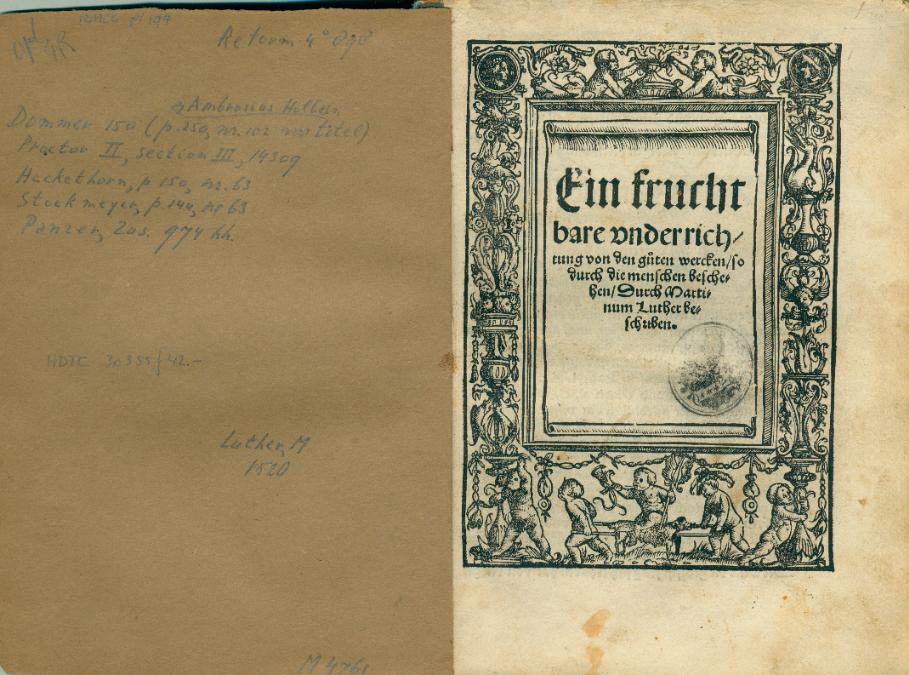 Reform 4°
Ambrosius Holbein
Dommer 150 (p.250, nr. 102 Titel)
Proctor II, section III, 14309
Hackethorn, p 150, nr. 63
Stockmeyer, p. 140, nr 63
Panzer, Zus. 974 hh.
HDTC 30355 / 42.-
Luther, M
1520
M 4761
Ein frucht
bare vnderrich/
tung von den gůten wercken/so
durch die menschen besche-
hen/Durch Marti-
num Luther be-
schriben.